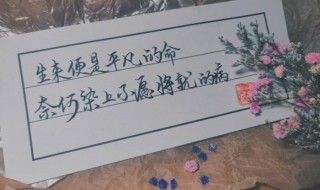 生来便是平凡的命
奈何染上了愿将就的病